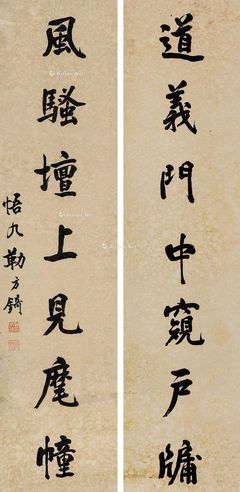 道義門中窺戶牖
風騷壇上見麾幢
悟九勒方錡